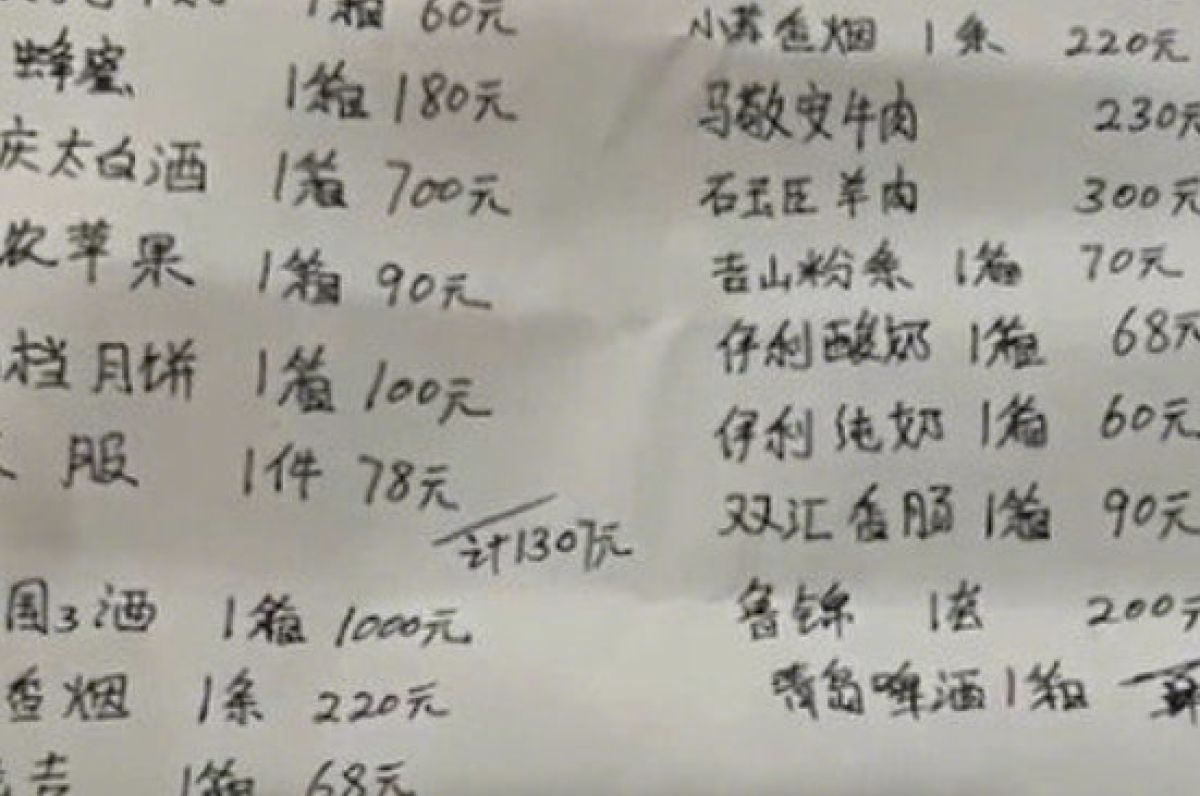 1箱 60元
蜂蜜 1箱 180元
庆太白酒 1箱 700元
农苹果 1箱 90元
档月饼 1箱 100元
服 1件 78元
计1307元
国3酒 1箱 1000元
香烟 1条 220元
吉 1箱 68元
小苏香烟 1条 220元
马敬安牛肉 230元
石玉臣羊肉 300元
吉山粉条 1箱 70元
伊利酸奶 1箱 68元
伊利纯奶 1箱 60元
双汇香肠 1箱 90元
鲁锦 1套 200元
青岛啤酒 1箱